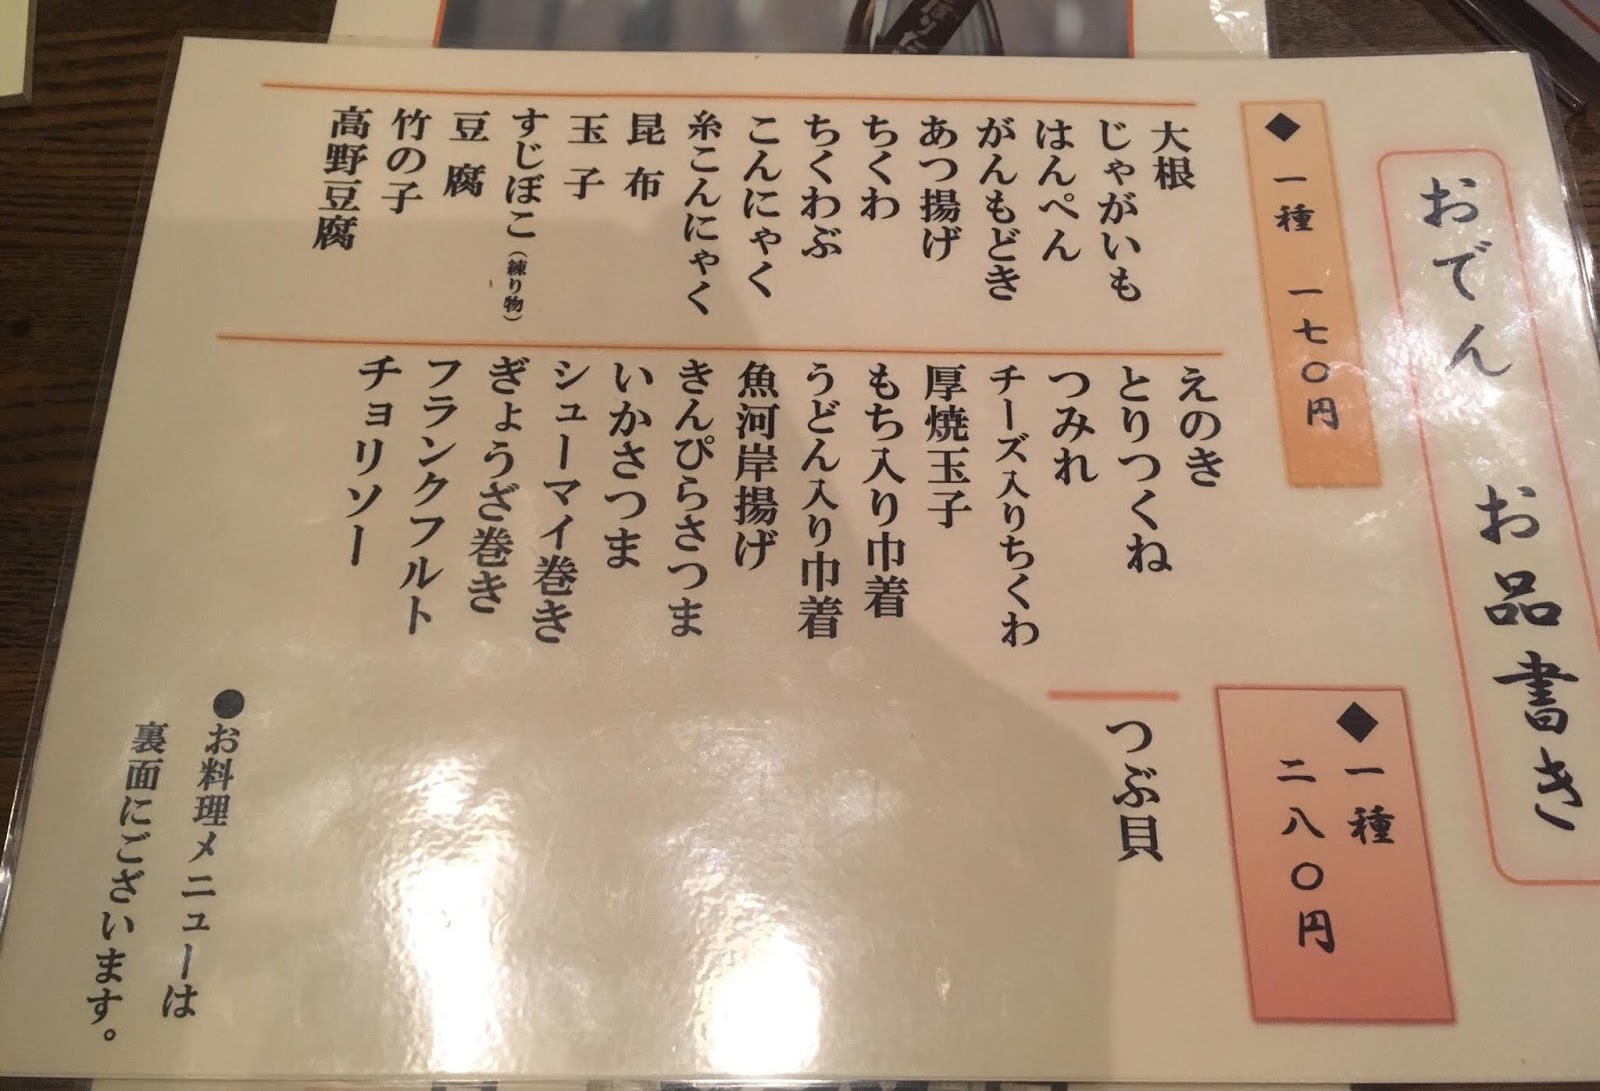 おでん お品書き
◆一種 一七〇円
大根
じゃがいも
はんぺん
がんもどき
あつ揚げ
ちくわ
ちくわぶ
こんにゃく
糸こんにゃく
昆布
玉子
すじぼこ（練り物）
豆腐
竹の子
高野豆腐
えのき
とりつくね
つみれ
チーズ入りちくわ
厚焼玉子
もち入り巾着
うどん入り巾着
魚河岸揚げ
きんぴらさつま
いかさつま
シューマイ巻き
ぎょうざ巻き
フランクフルト
チョリソー
◆一種
二八〇円
つぶ貝
●お料理メニューは
裏面にございます。